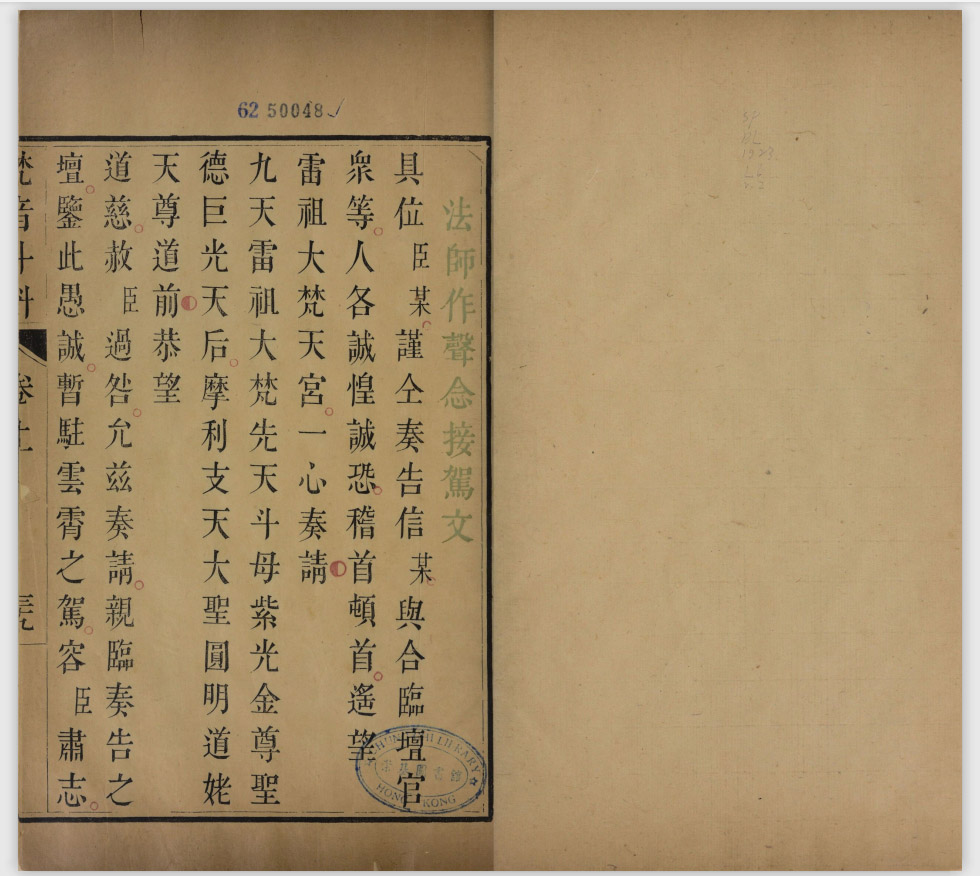 62 50048
法師作聲念接駕文
具位臣某謹仝奏告信某與合臨壇官
衆等人各誠惶誠恐稽首頓首遙望
雷祖大梵天宮一心奏請
九天雷祖大梵先天斗母紫光金尊聖
德巨光天后摩利支天大聖圓明道姥
天尊道前恭望
道慈赦臣過咎允茲奏請親臨奏告之
壇鑒此愚誠暫駐雲霄之駕容臣肅志
梵音斗科
LIBRARY
圖書館
HONG KONG